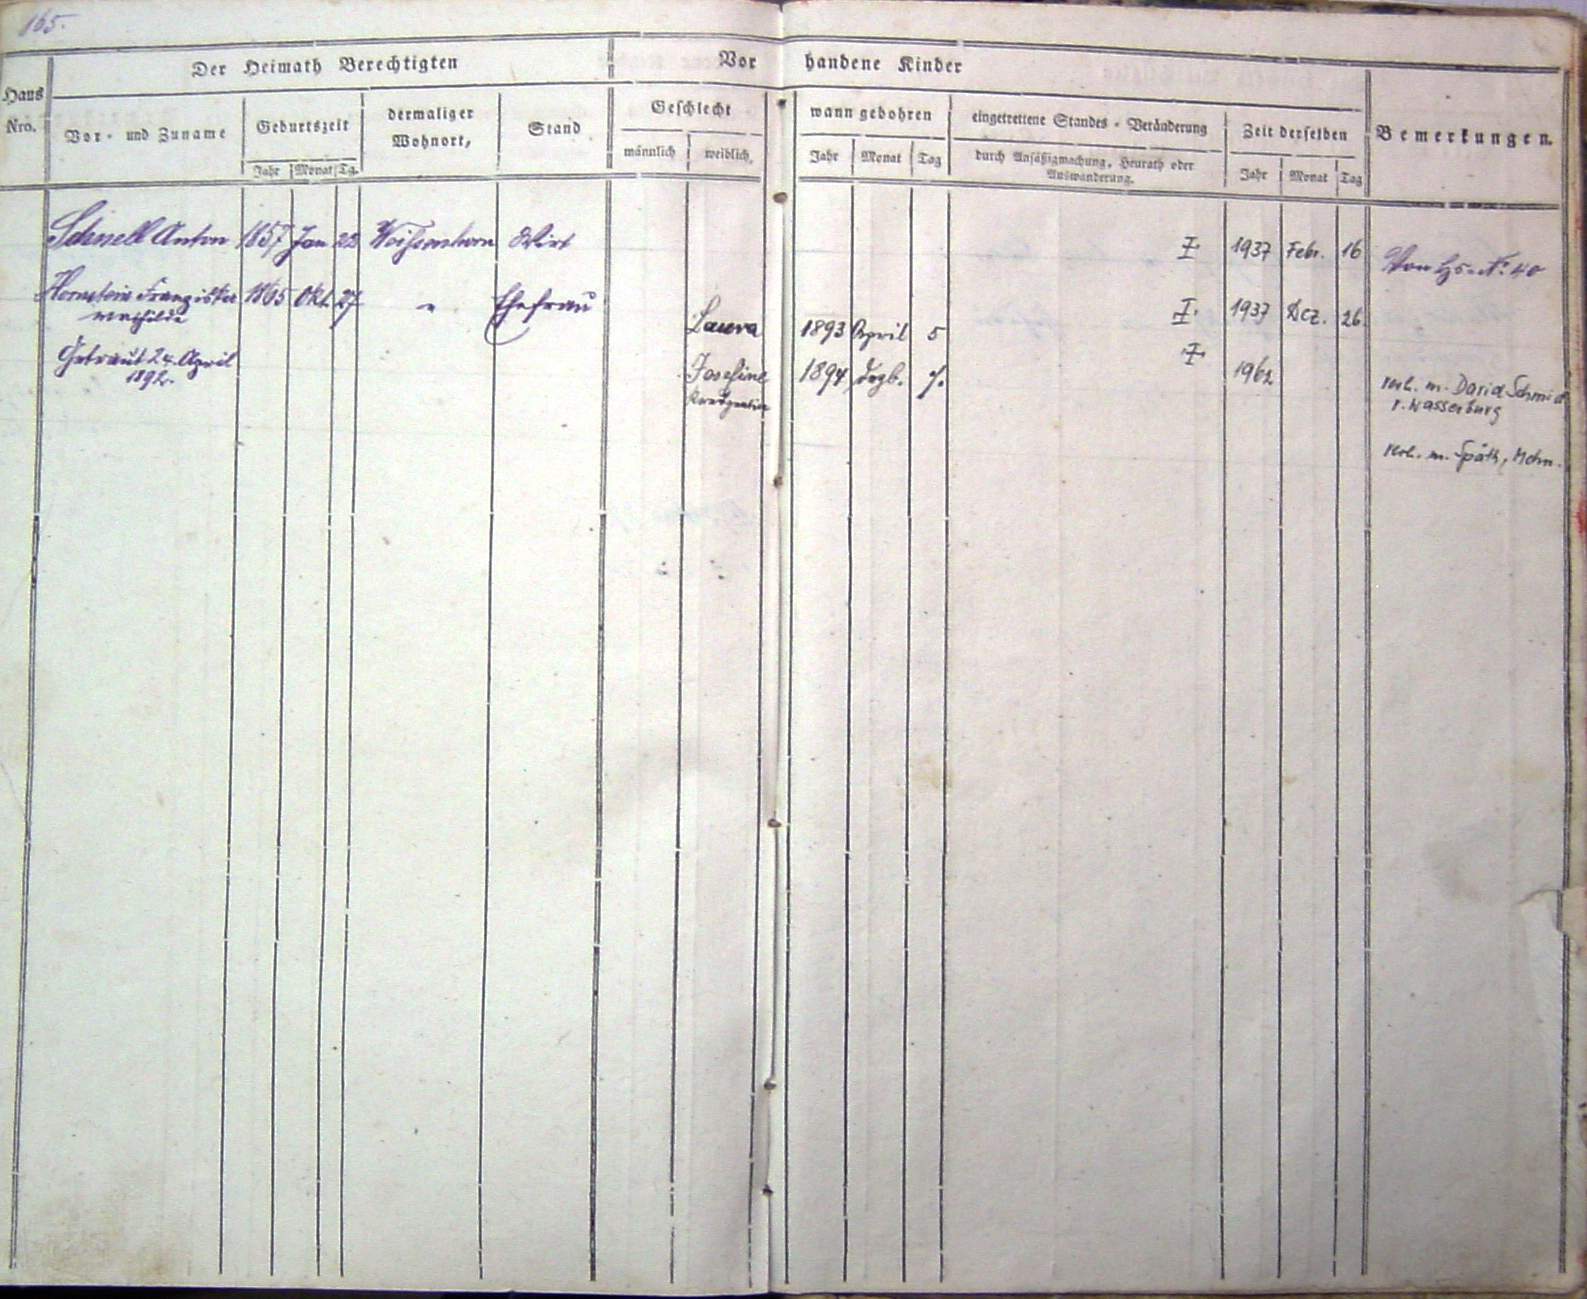 165.
Der Heimath Berechtigten
Vor handene Kinder
Haus Nro.
Vor- und Zuname
Geburtszeit
dermaliger Wohnort,
Stand
Geschlecht
wann gebohren
eingetrettene Standes-Veränderung
durch Ansäßigmachung, Heurath oder
Auswanderung.
Zeit derselben
Bemerkungen.
Jahr Monat Tg.
männlich weiblich,
Jahr Monat Tag
Jahr Monat Tag
Schnell Anton 1857 Jan 22 Weissenhorn Wirt 1937 Febr. 16
Von Hs. N: 40
Hornstein Franziska 1865 Okt. 27 " Ehefrau 1937 Dez. 26
Mathilde
Laura 1893 April 5
Getraut 24. April
1892.
Josefine 1894 Dezb. 7. 1962
Kreszentia
verh. m. David Schmid
v. Wasserburg
verh. m. Späth, Mchn.